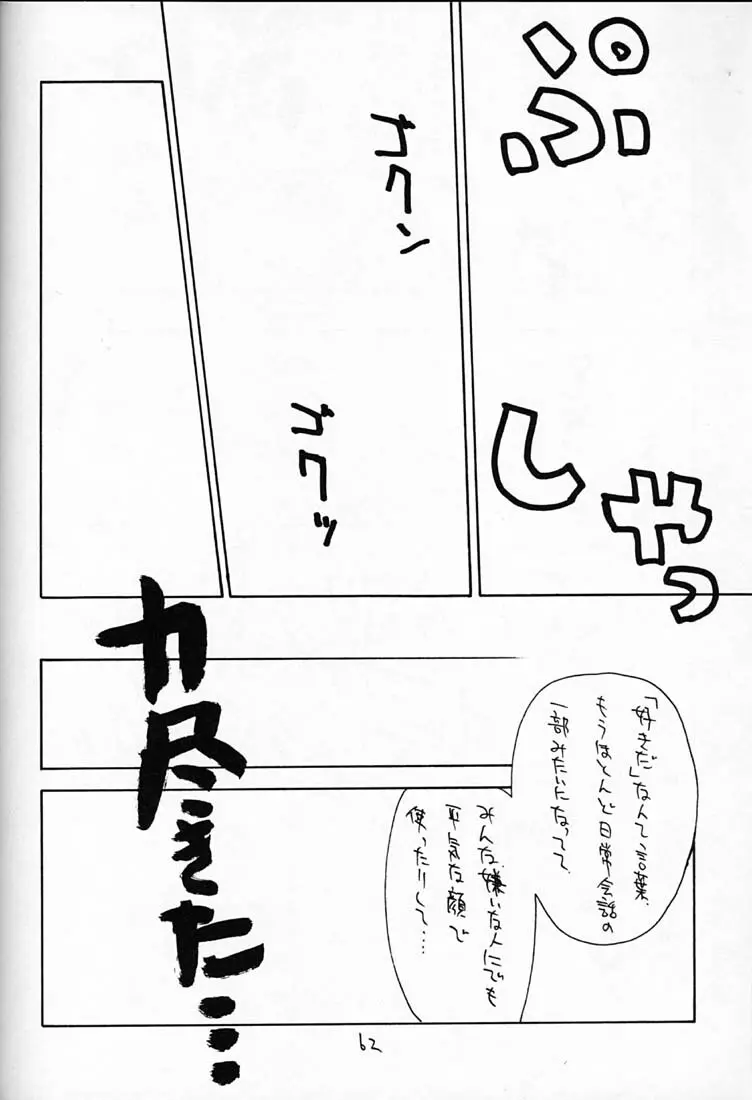 ぷ
しゃっ
ガクン
ガクッ
「好きだ」なんて、言葉、
もうほとんど日常会話の
一部みたいになってて
みんな、嫌いな人にでも
平気な顔で
使ったりして……
力尽きた……
62